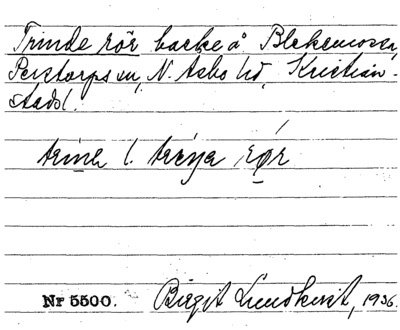 Trinde rör backe å Blekemossa,
Perstorps sn, N. Åsbo hd, Kristian-
stads l.
trinə l. tréṇa rør
Nr 5500. Birgit Lundkvist, 1936.